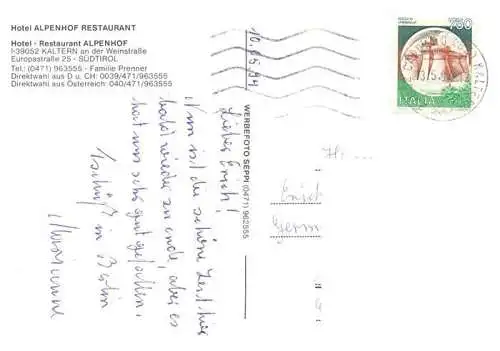 Hotel ALPENHOF RESTAURANT
Hotel - Restaurant ALPENHOF
I-39052 KALTERN an der Weinstraße
Europastraße 25 - SÜDTIROL
Tel.: (0471) 963555 - Familie Prenner
Direktwahl aus D u. CH: 0039/471/963555
Direktwahl aus Österreich: 040/471/963555
WERBEFOTO SEPPI (0471) 962555
Lieber Erich!
Nun ist die schöne Zeit hier
bald wieder zu ende, aber es
hat uns sehr gut gefallen.
Tschüß in Berlin
Marianne
750
ITALIA
Erich
Germ